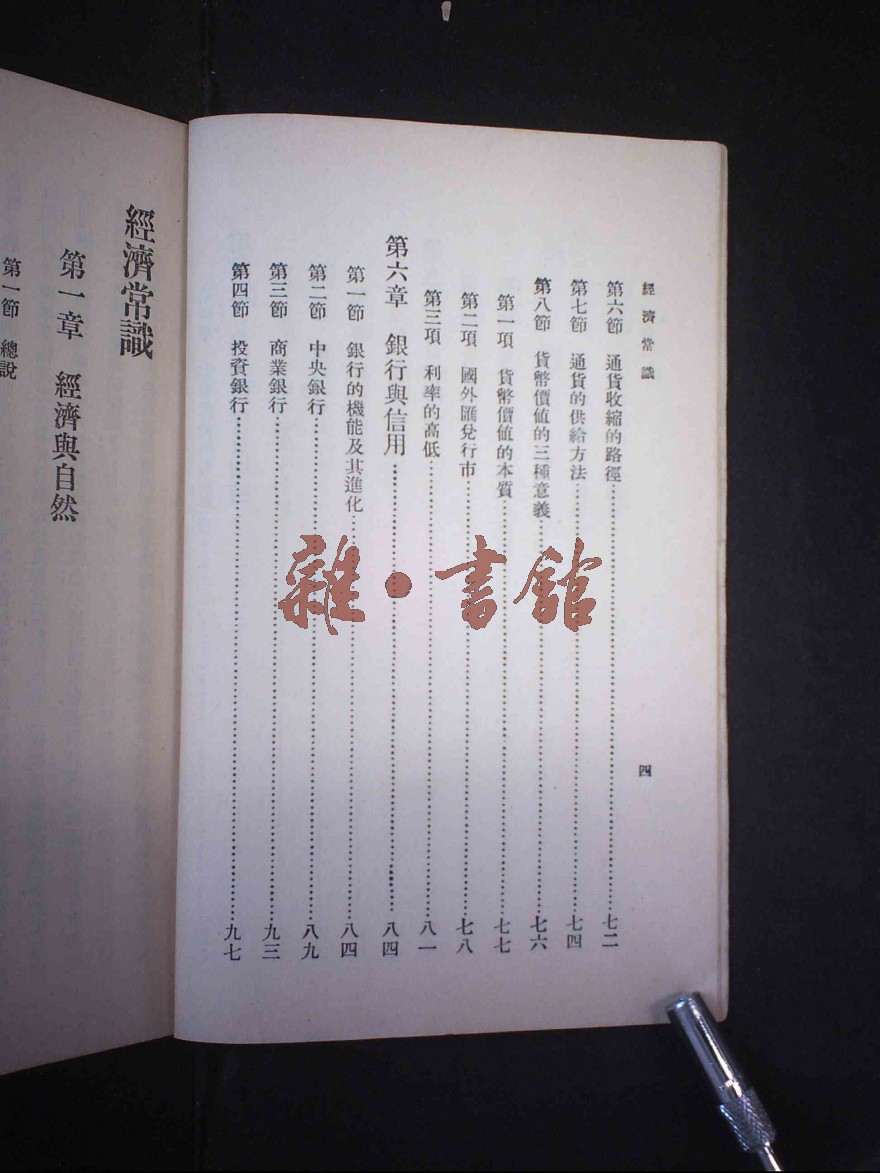 經濟常識
四
第六節 通貨收縮的路徑………七二
第七節 通貨的供給方法………七四
第八節 貨幣價值的三種意義………七六
第一項 貨幣價值的本質………七七
第二項 國外匯兌行市………七八
第三項 利率的高低………八一
第六章 銀行與信用………八四
第一節 銀行的機能及其進化………八四
第二節 中央銀行………八九
第三節 商業銀行………九三
第四節 投資銀行………九七
經濟常識
第一章 經濟與自然
第一節 總說
雜·書館